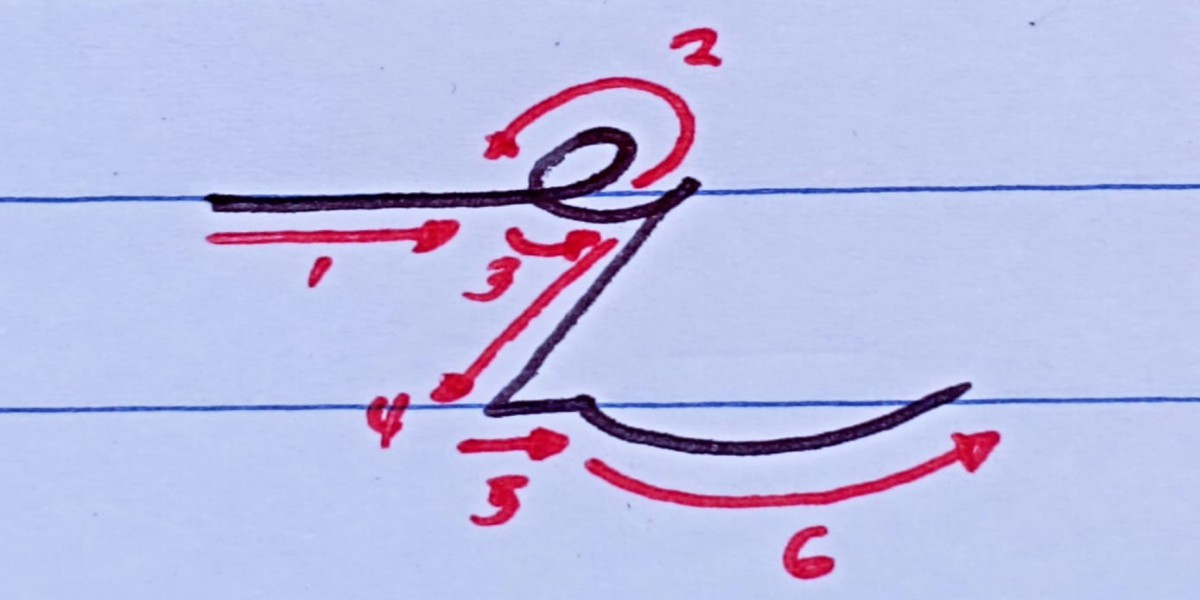 2
1 3
4
5
6